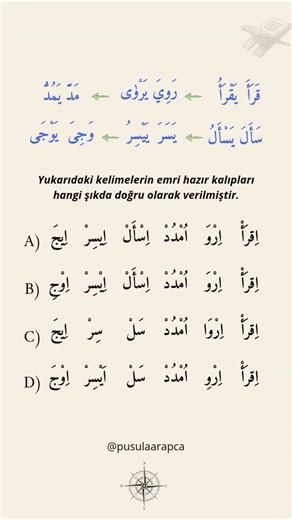 قَرَأَ يَقْرَأُ ← رَوِيَ يَرْوٰى ← مَدَّ يَمُدُّ
سَأَلَ يَسْأَلُ ← يَسَرَ يَيْسِرُ ← وَجِىَ يَوْجَى
Yukarıdaki kelimelerin emri hazır kalıpları
hangi şıkda doğru olarak verilmiştir.
A) اِقْرَأْ اِرْوَ اُمْدُدْ اِسْأَلْ اِيسِرْ اِيجَ
B) اِقْرَأْ اِرْوَ اُمْدُدْ اِسْأَلْ اِيْسِرْ اِوْجِ
C) اِقْرَأْ اِرْوَا اُمْدُدْ سَلْ سِرْ اِيجَ
D) اِقْرَأْ اِرْوِ اُمْدُدْ سَلْ اَيْسِرْ اِوْجَ
@pusulaarapca